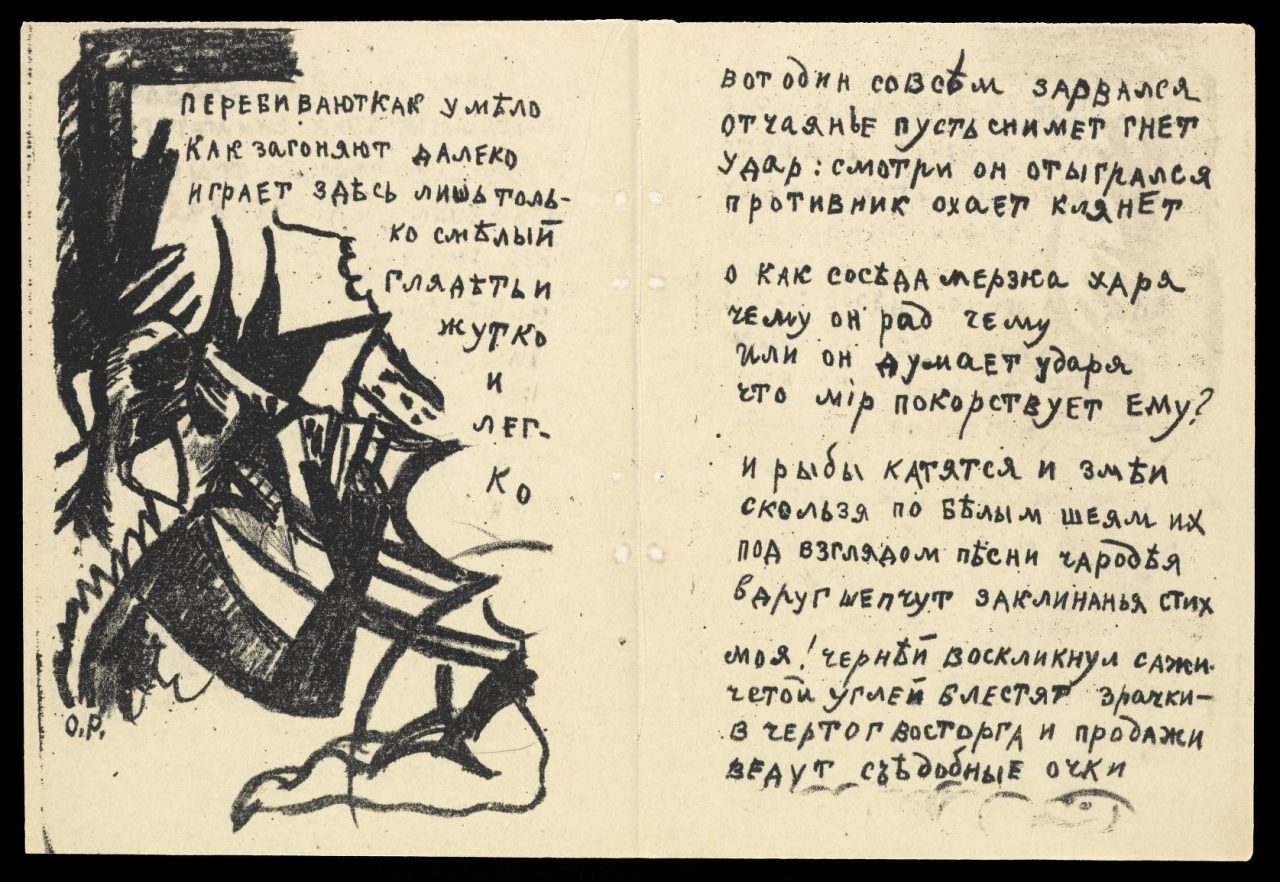 ПЕРЕБИВАЮТ КАК УМѢЛО
КАК ЗАГОНЯЮТ ДАЛЕКО
ИГРАЕТ ЗДѢСЬ ЛИШЬ ТОЛЬ-
КО СМѢЛЫЙ
ГЛЯДѢТЬ И
ЖУТКО
И
ЛЕГ-
КО
О.Р.
ВОТ ОДИН СОВСѢМ ЗАРВАЛСЯ
ОТЧАЯНЬЕ ПУСТЬ СНИМЕТ ГНЕТ
УДАР: СМОТРИ ОН ОТЫГРАЛСЯ
ПРОТИВНИК ОХАЕТ КЛЯНЕТ
О КАК СОСѢДА МЕРЗКА ХАРЯ
ЧЕМУ ОН РАД ЧЕМУ
ИЛИ ОН ДУМАЕТ УДАРЯ
ЧТО МІР ПОКОРСТВУЕТ ЕМУ?
И РЫБЫ КАТЯТСЯ И ЗМѢИ
СКОЛЬЗЯ ПО БѢЛЫМ ШЕЯМ ИХ
ПОД ВЗГЛЯДОМ ПѢСНИ ЧАРОДѢЯ
ВДРУГ ШЕПЧУТ ЗАКЛИНАНЬЯ СТИХ
МОЯ! ЧЕРНѢЙ ВОСКЛИКНУЛ САЖИ.
ЧЕТОЙ УГЛЕЙ БЛЕСТЯТ ЗРАЧКИ—
В ЧЕРТОГ ВОСТОРГА И ПРОДАЖИ
ВЕДУТ СЪѢДОБНЫЕ ОЧКИ